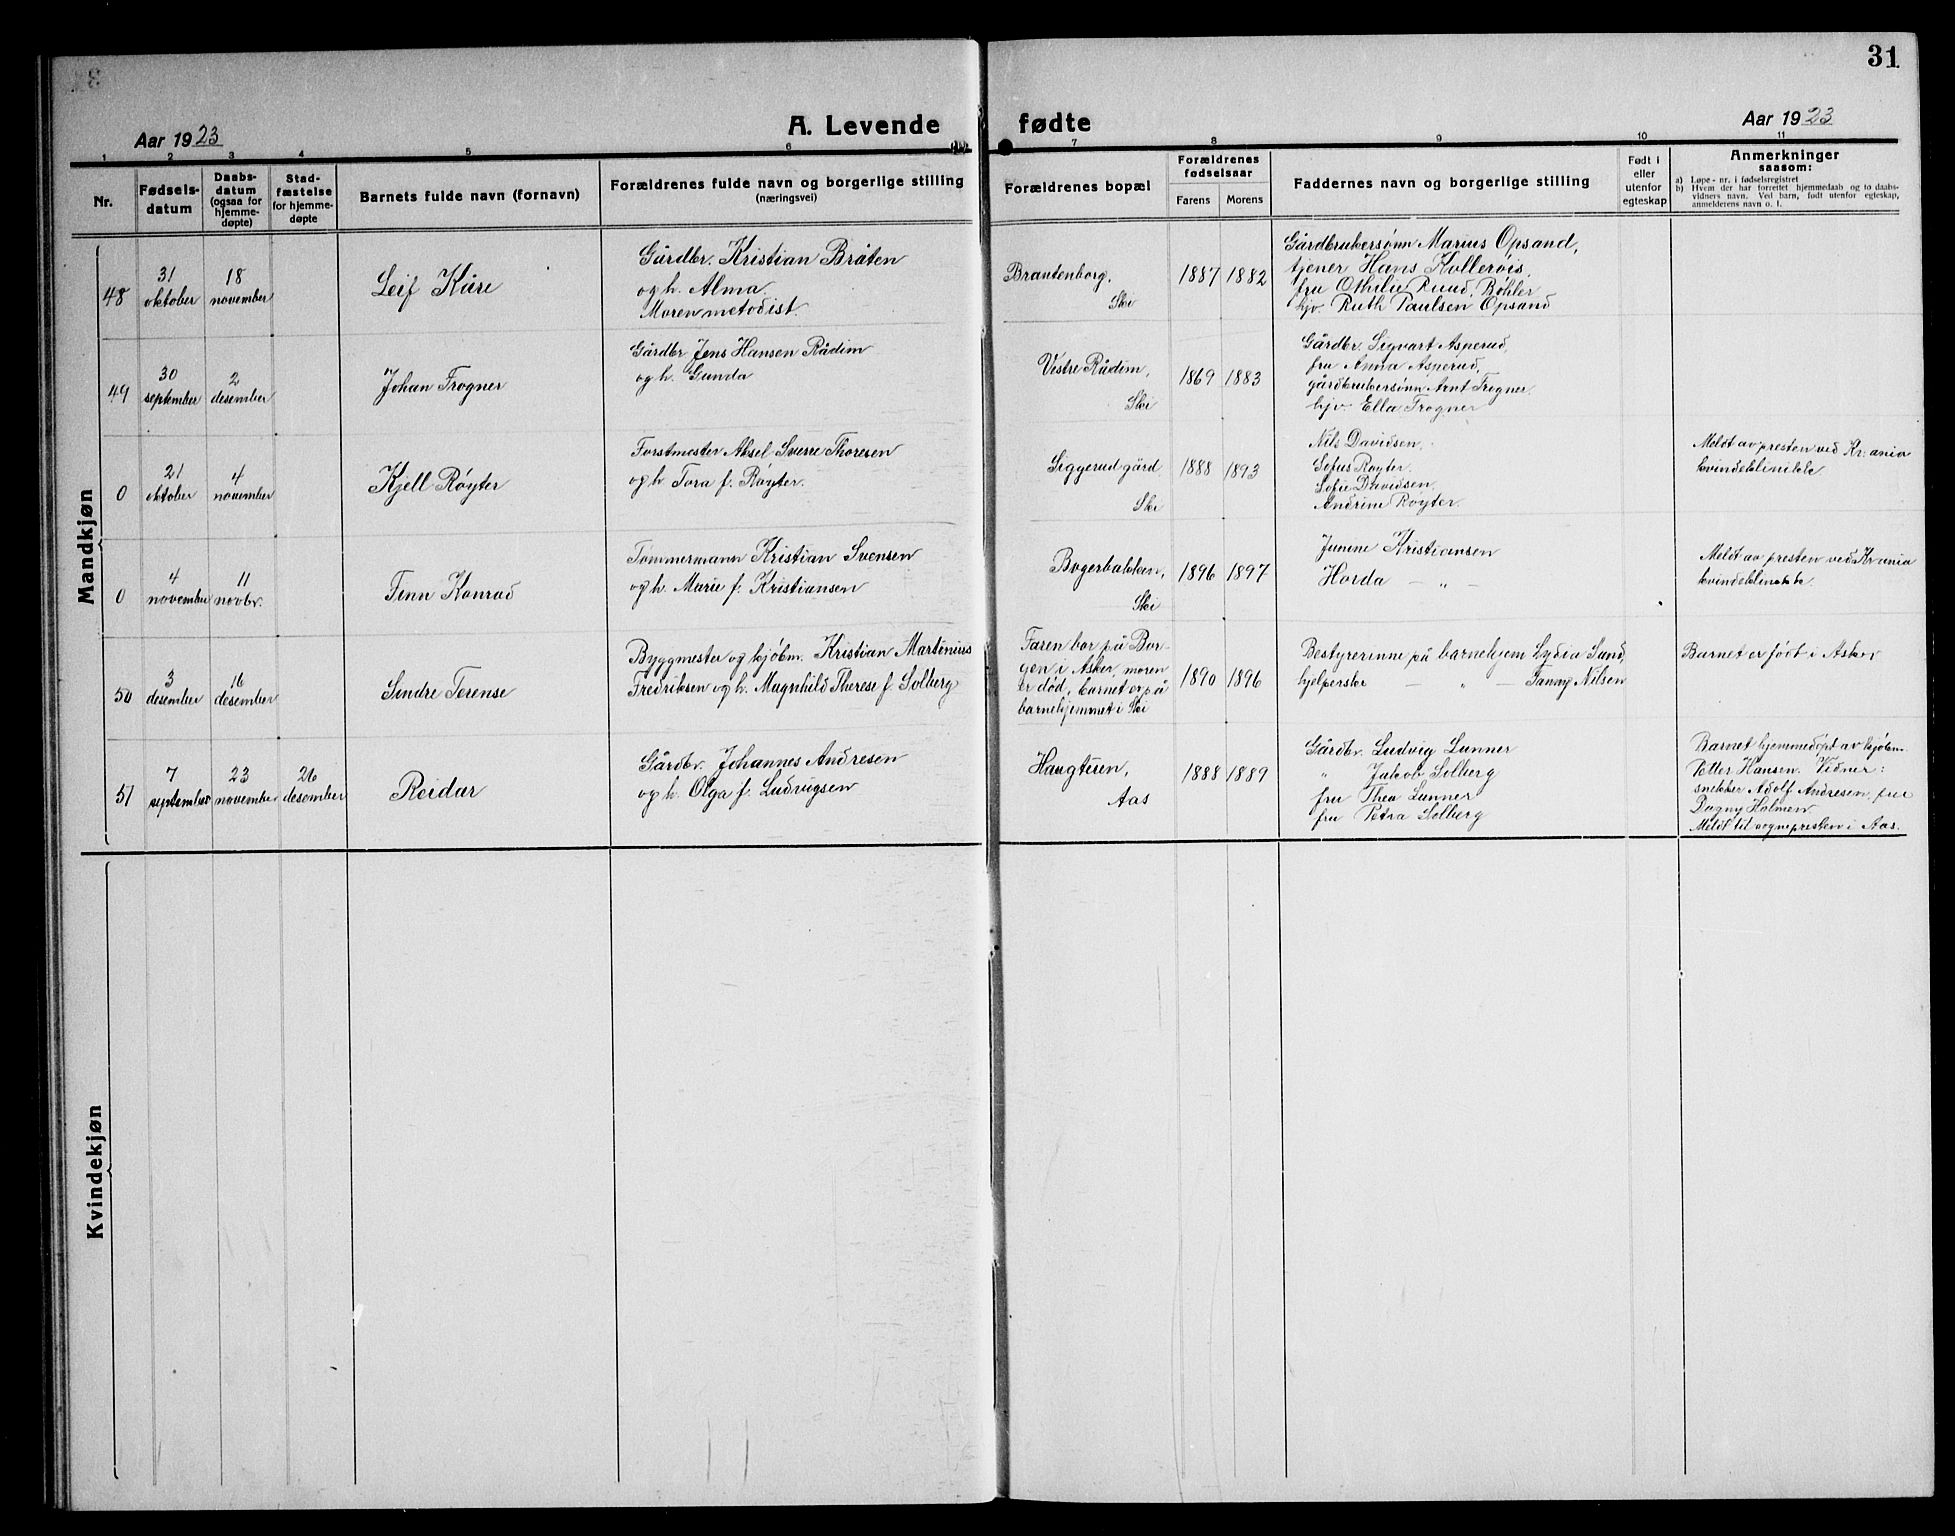 31
Aar 1923
A. Levende fødte
Aar 1923
1 2 3 4 5 6 7 8 9 10 11
Nr.
Fødsels-
datum
Daabs-
datum
(ogsaa for
hjemme-
døpte)
Stad-
fæstelse
for hjemme-
døpte
Barnets fulde navn (fornavn)
Forældrenes fulde navn og borgerlige stilling
(næringsvei)
Forældrenes bopæl
Forældrenes
fødselsaar
Farens Morens
Faddernes navn og borgerlige stilling
Født i
eller
utenfor
egteskap
Anmerkninger
saasom:
a) Løpe-nr. i fødselsregistret
b) Hvem der har forrettet hjemmedaab og to daabs-
vidners navn. Ved barn, født utenfor egteskap,
anmelderens navn o. l.
Mandkjøn
48
31
oktober
18
november
Leif Kåre
Gårdbr. Kristian Bråten
og h. Alma.
Moren metodist.
Brandenborg,
Ski
1887 1882
Gårdbrukersønn Marius Opsand,
tjener Hans Kollerøis,
fru Othilie Ruud, Bøhler
hjv. Ruth Paulsen Opsand
49
30
september
2
desember
Johan Trogner
Gårdbr. Jens Hansen Rådim
og h. Gunda
Vestre Rådim,
Ski
1869 1883
Gårdbr. Sigvart Asperud,
fru Anna Asperud,
gårdbrukersønn Arnt Trogner.
hjv. Ella Trogner
0
21
oktober
4
november
Kjell Røyter
Forstmester Aksel Sverre Thoresen
og h. Tora f. Røyter.
Siggerud gård
Ski
1888 1893
Nils Davidsen.
Sofus Røyter.
Sofie Davidsen,
Andrine Røyter.
Meldt av presten ved Kr.ania
kvindeklinikk
0
4
november
11
novbr.
Finn Konrad
Tømmermann Kristian Svensen
og h. Marie f. Kristiansen
Bogerbakken,
Ski
1896 1897
Kristiansen
Horda — „ —
Meldt av presten ved Kr.ania
50
3
desember
16
desember
Sindre Terense
Byggmester og kjøbm. Kristian Martinius
Fredriksen og h. Magnhild Therese f. Solberg
Faren bor på Bor-
gen i Asker, moren
er død, barnet er på
barnehjemmet i Ski
1890 1896
Bestyrerinne på barnehjem Lydia Sand,
hjelperske — „ — Fanny Nilsen
Barnet er født i Asker
51
7
september
23
november
26
desember
Reidar
Gårdbr. Johannes Andresen
og h. Olga f. Ludvigsen
Haugteren,
Aas
1888 1889
Gårdbr. Ludvig Lunner
„ Jakob Solberg
fru Thea Lunner
fru Petra Solberg
Barnet hjemmedøpt av kjøbm.
Petter Hansen. Vidner:
snekker Adolf Andresen, fru
Dagny Holmen
Meldt til sognepresten i Aas.
Kvindekjøn